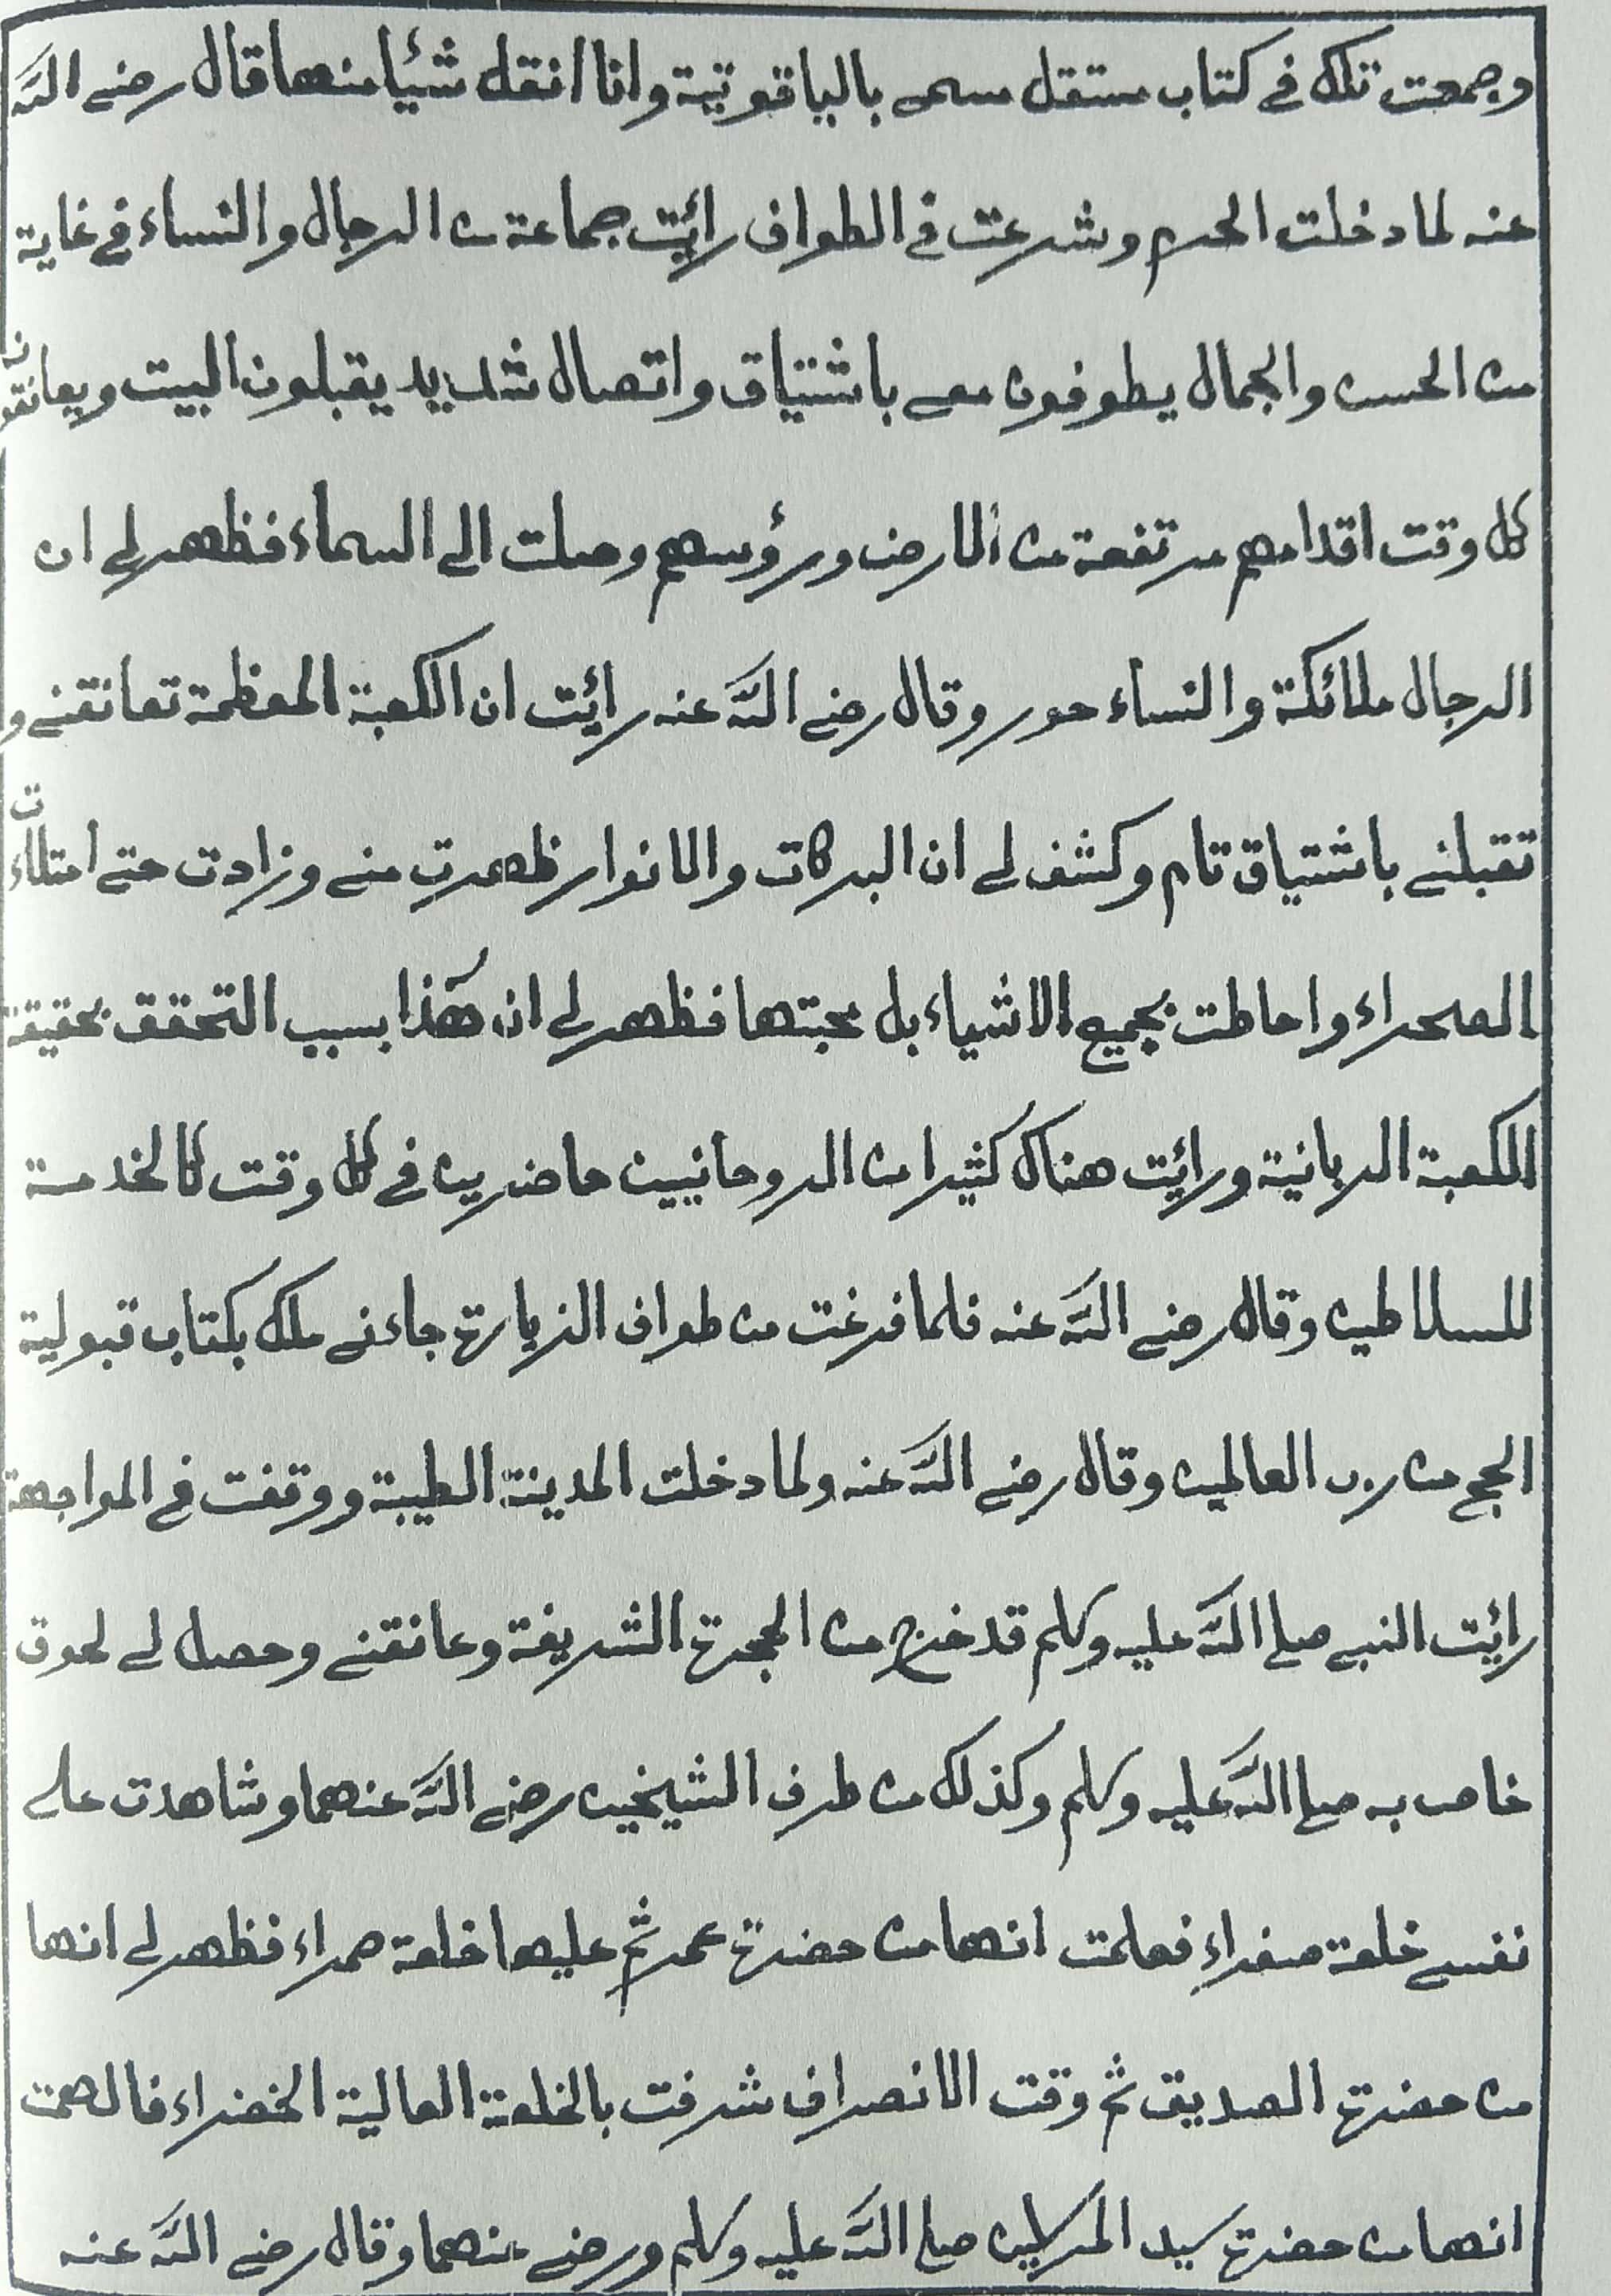 وجمعت تلك في كتاب مستقل مسمى بالياقوتية وانا انقل شئيا منها قال رضي الله
عنه لما دخلت الحرم وشرعت في الطواف رائت جماعة من الرجال والنساء في غاية
من الحسن والجمال يطوفون معي باشتياق واتصال شديد يقبلون البيت ويعانقون
كل وقت اقدامهم مرتفعة من الارض ورؤسهم وصلت الى السماء فظهر لي ان
الرجال ملائكة والنساء حور وقال رضي الله عنه رائت ان الكعبة المعظمة تعانقني و
تقبلني باشتياق تام وكشف لي ان البركات والانوار ظهرت مني وزادت حتى امتلاءت
الصحراء واحاطت بجميع الاشياء بل محبتها فظهر لي ان هذا بسبب التحقق بحقيقة
الكعبة الربانية ورائت هناك كثيرا من الروحانيين حاضرين في كل وقت كالخدمة
للسلاطين وقال رضي الله عنه فلما فرغت من طواف الزيارة جاءني ملك بكتاب قبولية
الحج من رب العالمين وقال رضي الله عنه ولما دخلت المدينة الطيبة ووقفت في المواجهة
رائت النبي صلى الله عليه وسلم قد خرج من الحجرة الشريفة وعانقني وحصل لي لحوق
خاص به صلى الله عليه وسلم وكذلك من طرف الشيخين رضي الله عنهما وشاهدت على
نفسي خلعة صفراء فعلمت انها من حضرة عمر ثم عليها خلعة حمراء فظهر لي انها
من حضرة الصديق ثم وقت الانصراف شرفت بالخلعة العالية الخضراء فالهمت
انها من حضرة سيد المرسلين صلى الله عليه وسلم ورضي عنهما وقال رضي الله عنه